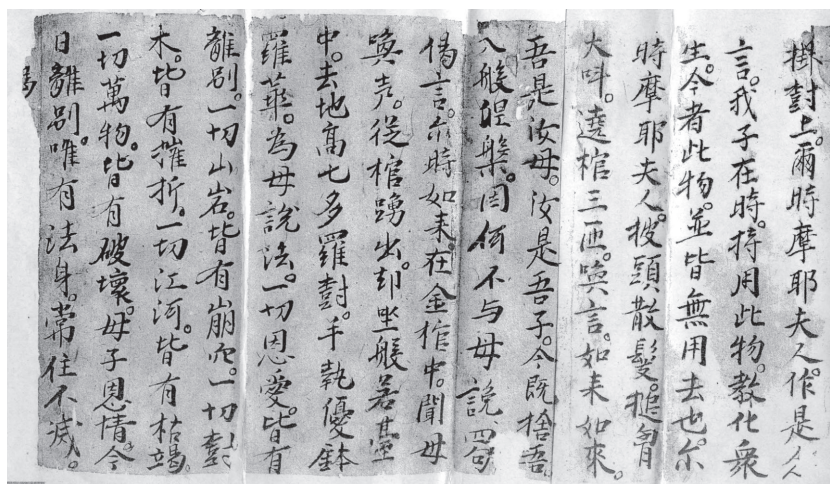 掛對上。爾時摩耶夫人。作是
言。我子在時。持用此物。教化衆
生。今者此物。並皆無用去也。尔
時摩耶夫人。披頭散髮。搥胷
大叫。遶棺三匝。喚言。如来如來。
吾是汝母。汝是吾子。今既捨吾。
入般涅槃。因何不与母說四句
偈言。尓時如来。在金棺中。聞母
喚声。從棺踴出。却坐般若臺
中。去地高七多羅對。手執優鉢
羅華。為母說法。一切恩愛。皆有
離别。一切山岩。皆有崩。一切對
木。皆有摧折。一切江河。皆有枯竭。
一切萬物。皆有破壞。母子恩情。今
日離别。唯有法身。常住不滅。